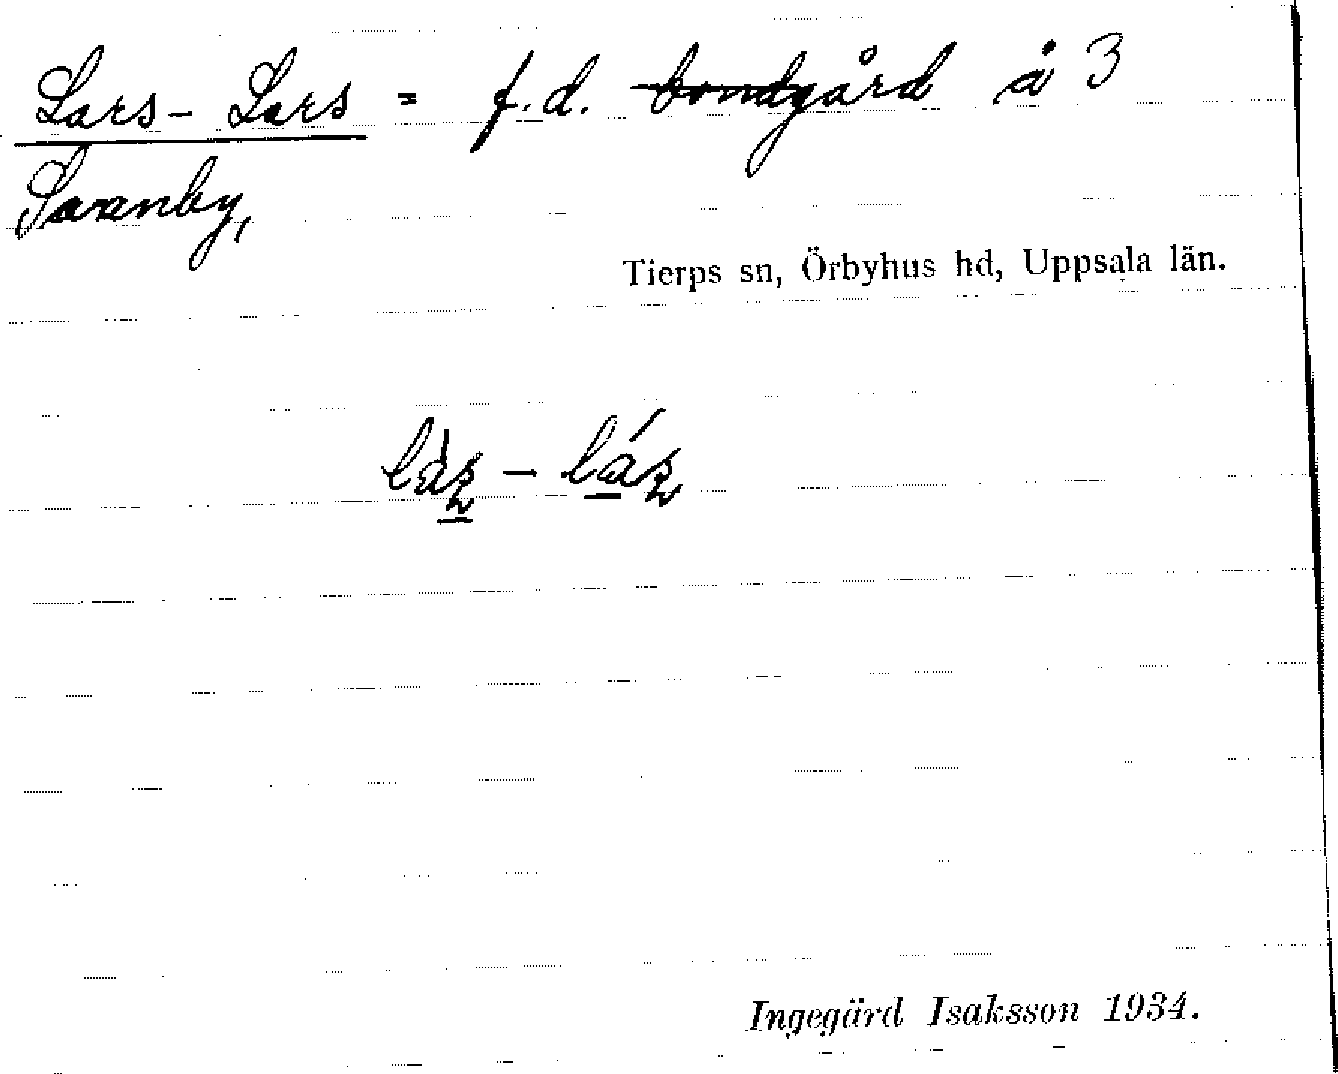 Lars-Lars = f.d. bondgård å 3
Svanby,
Tierps sn, Örbyhus hd, Uppsala län.
Ingegärd Isaksson 1934.